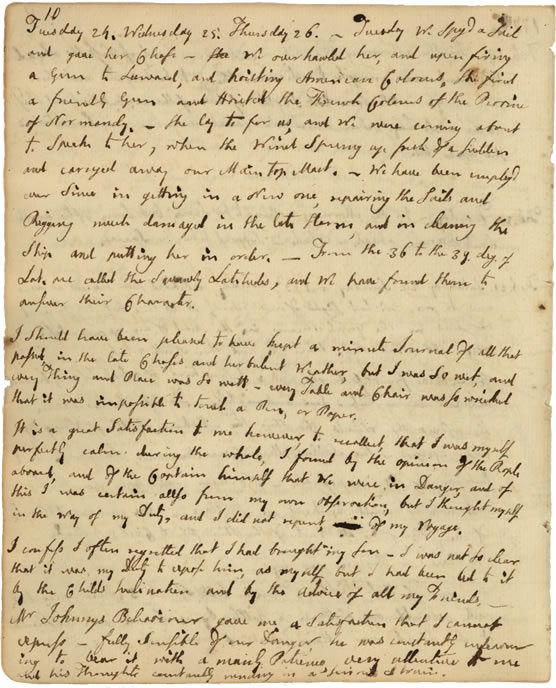 10
Tuesday 24. Wednesday 25. Thursday 26. — Tuesday We Spy'd a Sail
and gave her Chase — We overhawled her, and upon firing
a Gun to Leeward, and hoisting American Colours, She fired
a friendly Gun and hoisted the French Colours of the Province
of Normandy. — She lay to for us, and We were coming about
to Speak to her, when the Wind Sprung up fresh of a sudden
and carryed away our Main top Mast. — We have been employd
ever Since in getting in a New one, repairing the Sails and
Rigging much damaged in the late Storm, and in cleaning the
Ship and putting her in order. — From the 36 to the 39. deg. of
Lat. are called the Squawly Latitudes, and We have found them to
answer their Character.
I should have been pleased to have kept a minute Journal of all that
passed, in the late Chases and turbulent Weather, but I was so wet, and
every Thing and Place was so wett — every Table and Chair was so wrecked
that it was impossible to touch a Pen, or Paper.
It is a great Satisfaction to me however to recollect, that I was myself
perfectly calm during the whole, I found by the opinion of the People
aboard, and of the Captain himself that We were in Danger, and of
this I was certain allso from my own Observation, but I thought myself
in the Way of my Duty, and I did not repent of my Voyage.
I confess I often regretted that I had brought my son — I was not so clear
that it was my Duty to expose him, as myself, but I had been led to it
by the Childs Inclination and by the Advice of all my Friends. —
Mr Johnnys Behaviour gave me a Satisfaction that I cannot
express — fully sensible of our Danger, he was constantly endeavour
ing to bear it with a manly Patience, very attentive to me
and his Thoughts constantly running in a serious Strain.